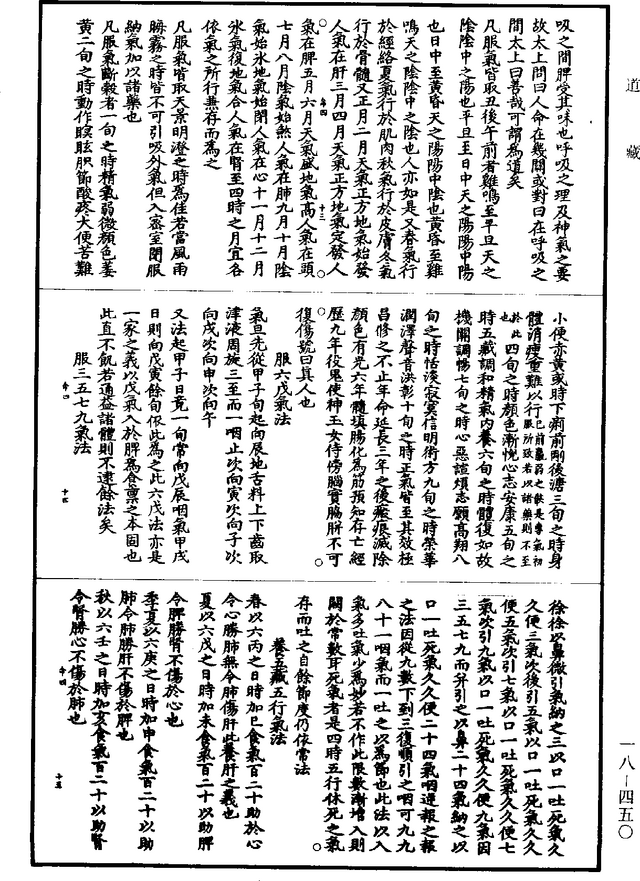 道藏
吸之間脾受其味也呼吸之理乃神氣之要
故太上問曰人命在幾間或對曰在呼吸之
間太上曰善哉可謂為道矣
凡服氣皆取丑後午前者雞鳴至平旦天之
陰陰中之陽也平旦至日中天之陽陽中陽
也日中至黃昏天之陽陽中陰也黃昏至雞
鳴天之陰陰中之陰也人亦如是又春氣行
於經絡夏氣行於肌肉秋氣行於皮膚冬氣
行於骨髓又正月二月天氣正方地氣始發
人氣在肝三月四月天氣正方地氣定發人
氣在脾五月六月天氣盛地氣高人氣在頭
七月八月陰氣始煞人氣在肺九月十月陰
氣始氷地氣始閉人氣在心十一月十二月
氷氣復地氣合人氣在腎至四時之月宜各
依氣之所行兼存而為之
凡服氣皆取天景明澄之時為佳若當風雨
晦霧之時皆不可引吸外氣但入密室閉服
納氣加以諸藥也
凡服氣斷穀者一旬之時精氣弱微顏色萎
黃二旬之時動作瞑眩肢節酸疼大便苦難
小便赤黃或時下痢前剛後溏三旬之時身
體消瘦重難以行已前羸弱之候是專氣初服所致若以諸藥則不至
於此也四旬之時顏色漸悅心志安康五旬之
時五藏調和精氣內養六旬之時體復如故
機關調暢七旬之時心惡諠煩志願高翔八
旬之時恬淡寂寞信明術方九旬之時榮華
潤澤聲音洪彰十旬之時正氣皆至其效極
昌修之不止年命延長三年之後瘢痕滅除
顏色有光六年髓填腸化為筋預知存亡經
歷九年役鬼使神玉女侍傍腦實脇胼不可
復傷號曰真人也
服六戊氣法
氣旦先從甲子旬起向辰地舌料上下齒取
津液周旋三至而一咽止次向寅次向子次
向戌次向申次向午
又法起甲子日竟一旬常向戊辰咽氣甲戌
日則向戊寅餘旬依此為之此六戊法亦是
一家之義以戊氣入於脾為食稟之本固也
此直不飢若通益諸體則不逮餘法矣
服三五七九氣法
徐徐以鼻微引氣納之三以口一吐死氣久
久便三氣次後引五氣以口一吐死氣久久
便五氣次引七氣以口一吐死氣久久便七
氣次引九氣以口一吐死氣久久便九氣因
三五七九而并引之以鼻二十四氣納之以
口一吐死氣久久便二十四氣咽逆報之報
之法因從九數下到三復順引之咽可九九
八十一咽氣而一吐之以為節也此法以入
氣多吐氣少為妙若不作此限數漸增入則
闕於常數耳死氣者是四時五行休死之氣
存而吐之自餘節度仍依常法
養五藏五行氣法
春以六丙之日時加巳食氣百二十助於心
令心勝肺無令肺傷肝此養肝之義也
夏以六戊之日時加未食氣百二十以助脾
令脾勝腎不傷於心也
季夏以六庚之日時加申食氣百二十以助
肺令肺勝肝不傷於脾也
秋以六壬之日時加亥食氣百二十以助腎
令腎勝心不傷於肺也
一八-四五〇